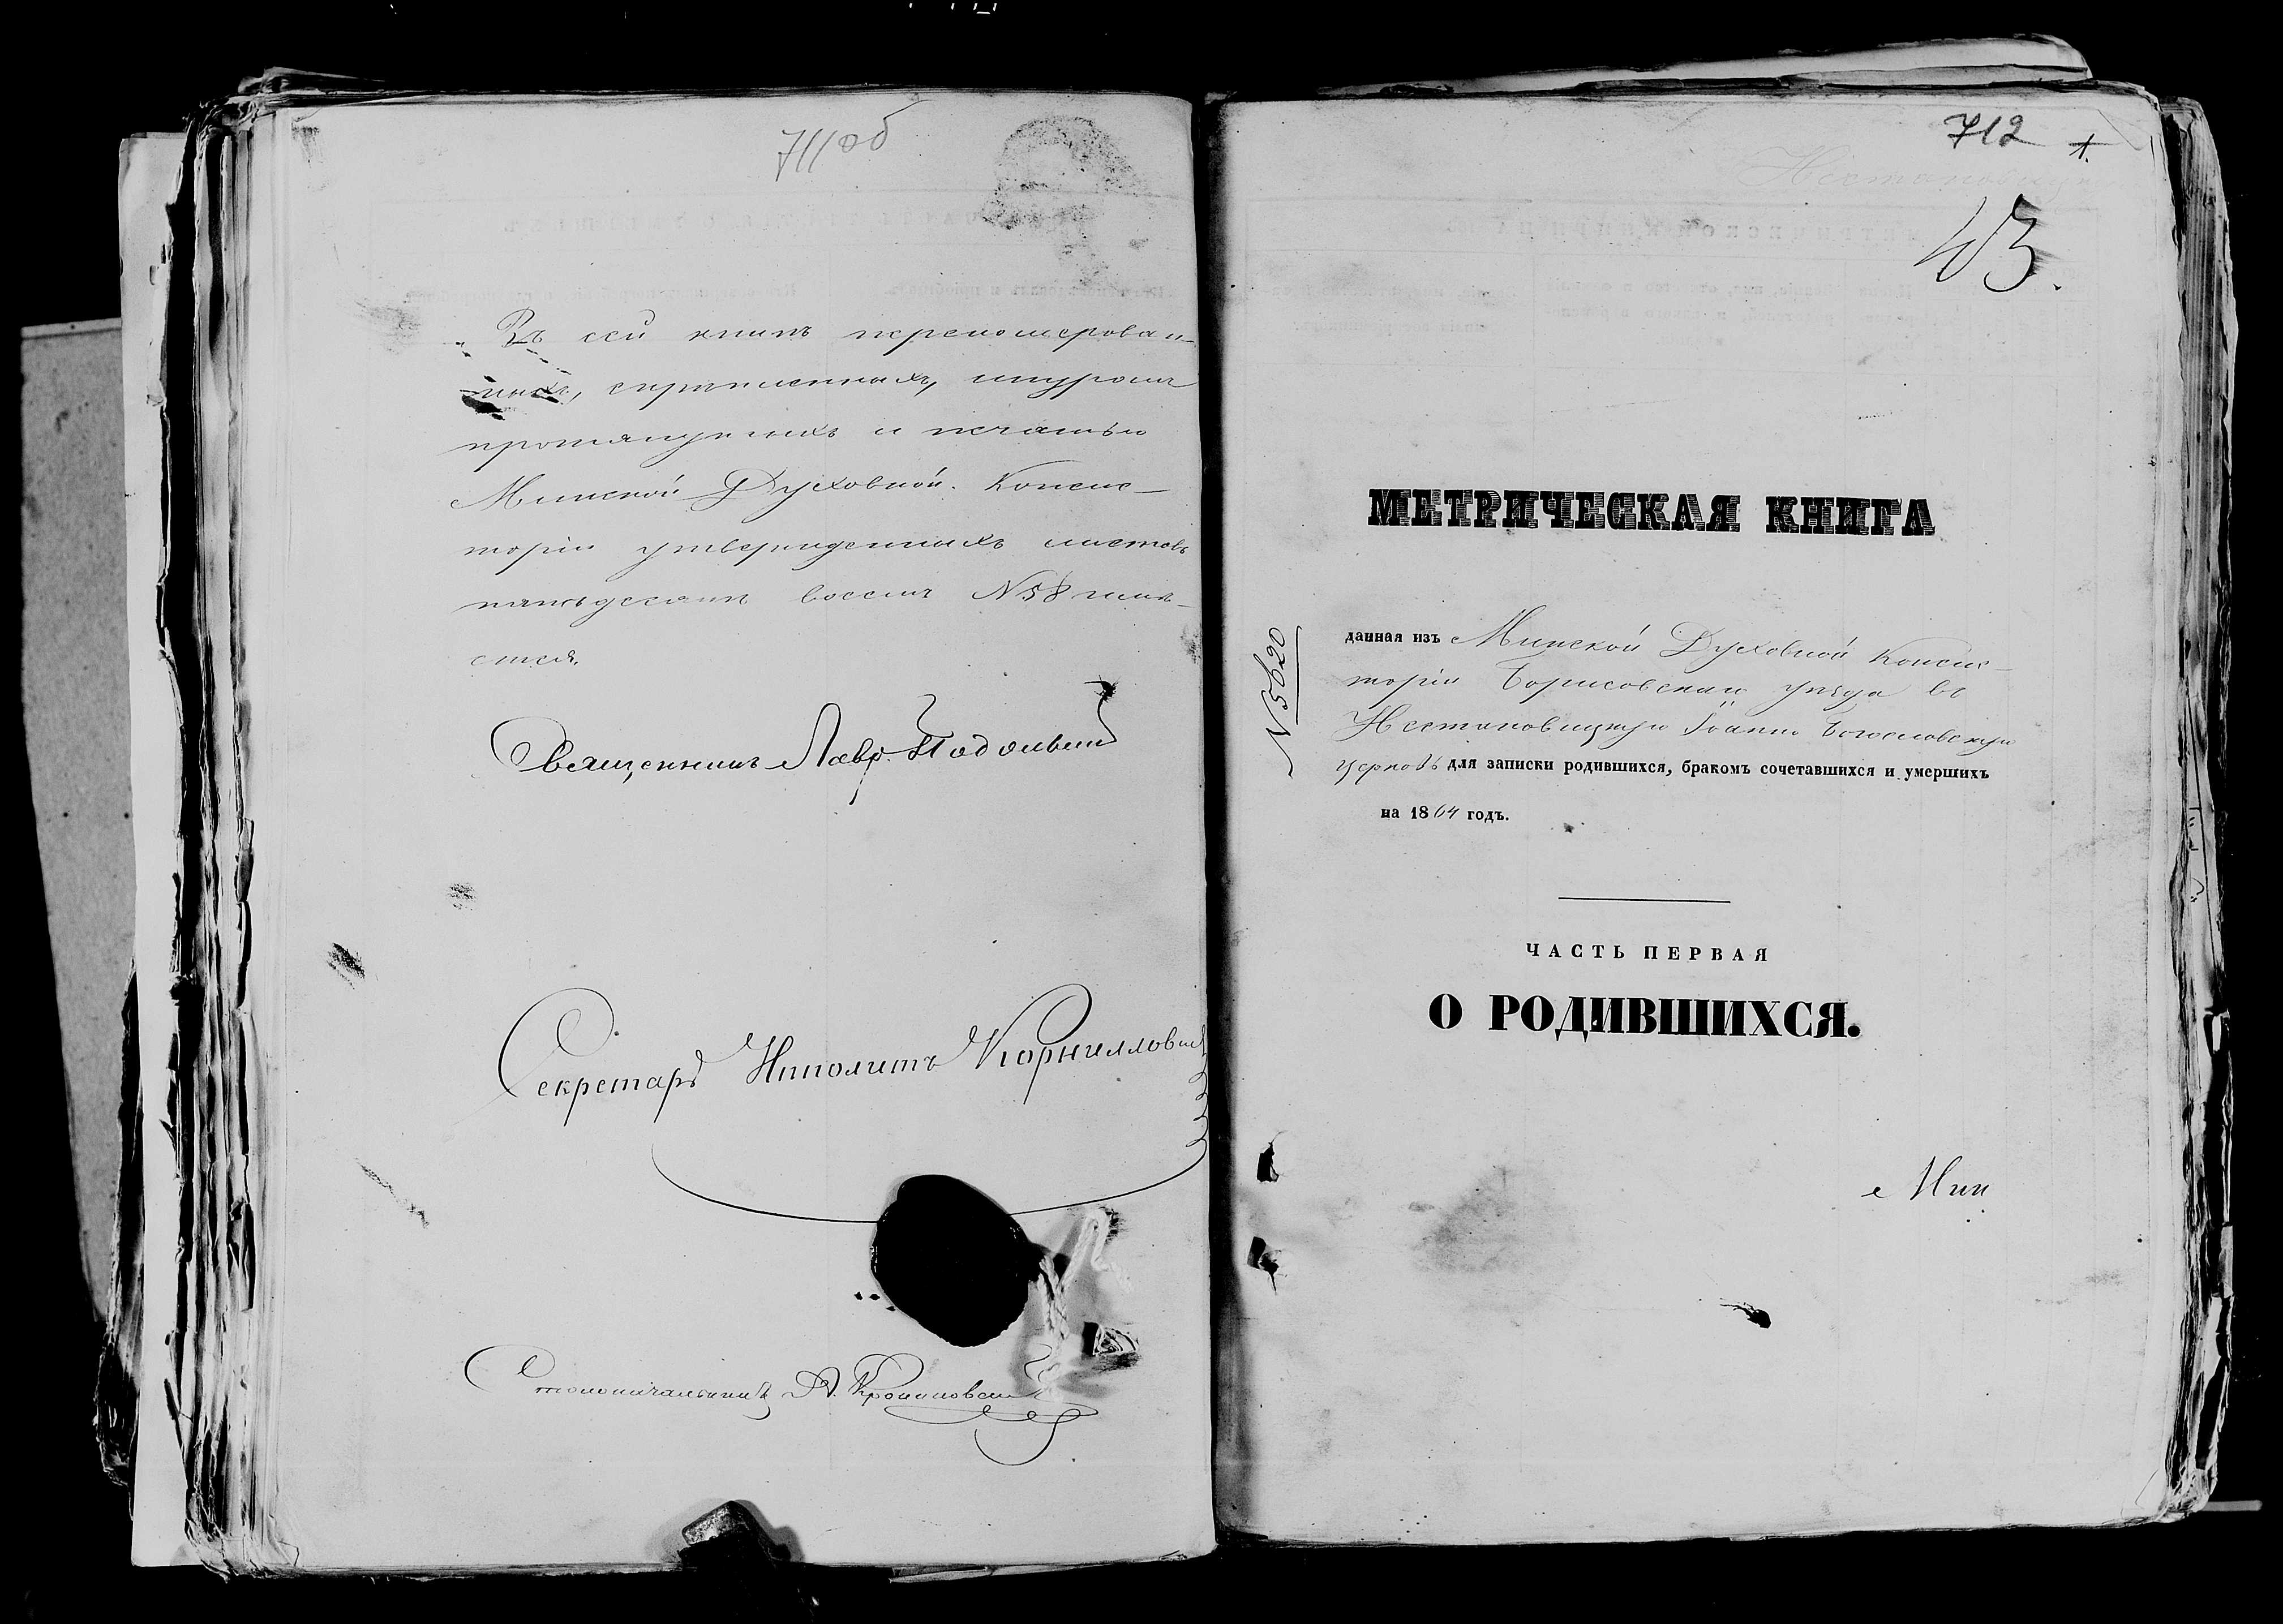 711 об
Въ сей книгѣ перенумерован-
ныхъ, скрѣпленныхъ, шнуромъ
протянутыхъ и печатью
Минской Духовной Консис-
торіи утвержденныхъ листовъ
пятьдесятъ восемь №58 имѣ-
ется.
Священникъ Лавр.
Секретарь Ипполитъ Корнилловичъ
Столоначальникъ А.
712 1.
43.
МЕТРИЧЕСКАЯ КНИГА
№5620
данная изъ Минской Духовной Консис-
торіи Борисовскаго уѣзда въ
Нестановицкую Іоанно Богословскую
церковь для записки родившихся, бракомъ сочетавшихся и умершихъ
на 1864 годъ.
ЧАСТЬ ПЕРВАЯ
О РОДИВШИХСЯ.
Мин